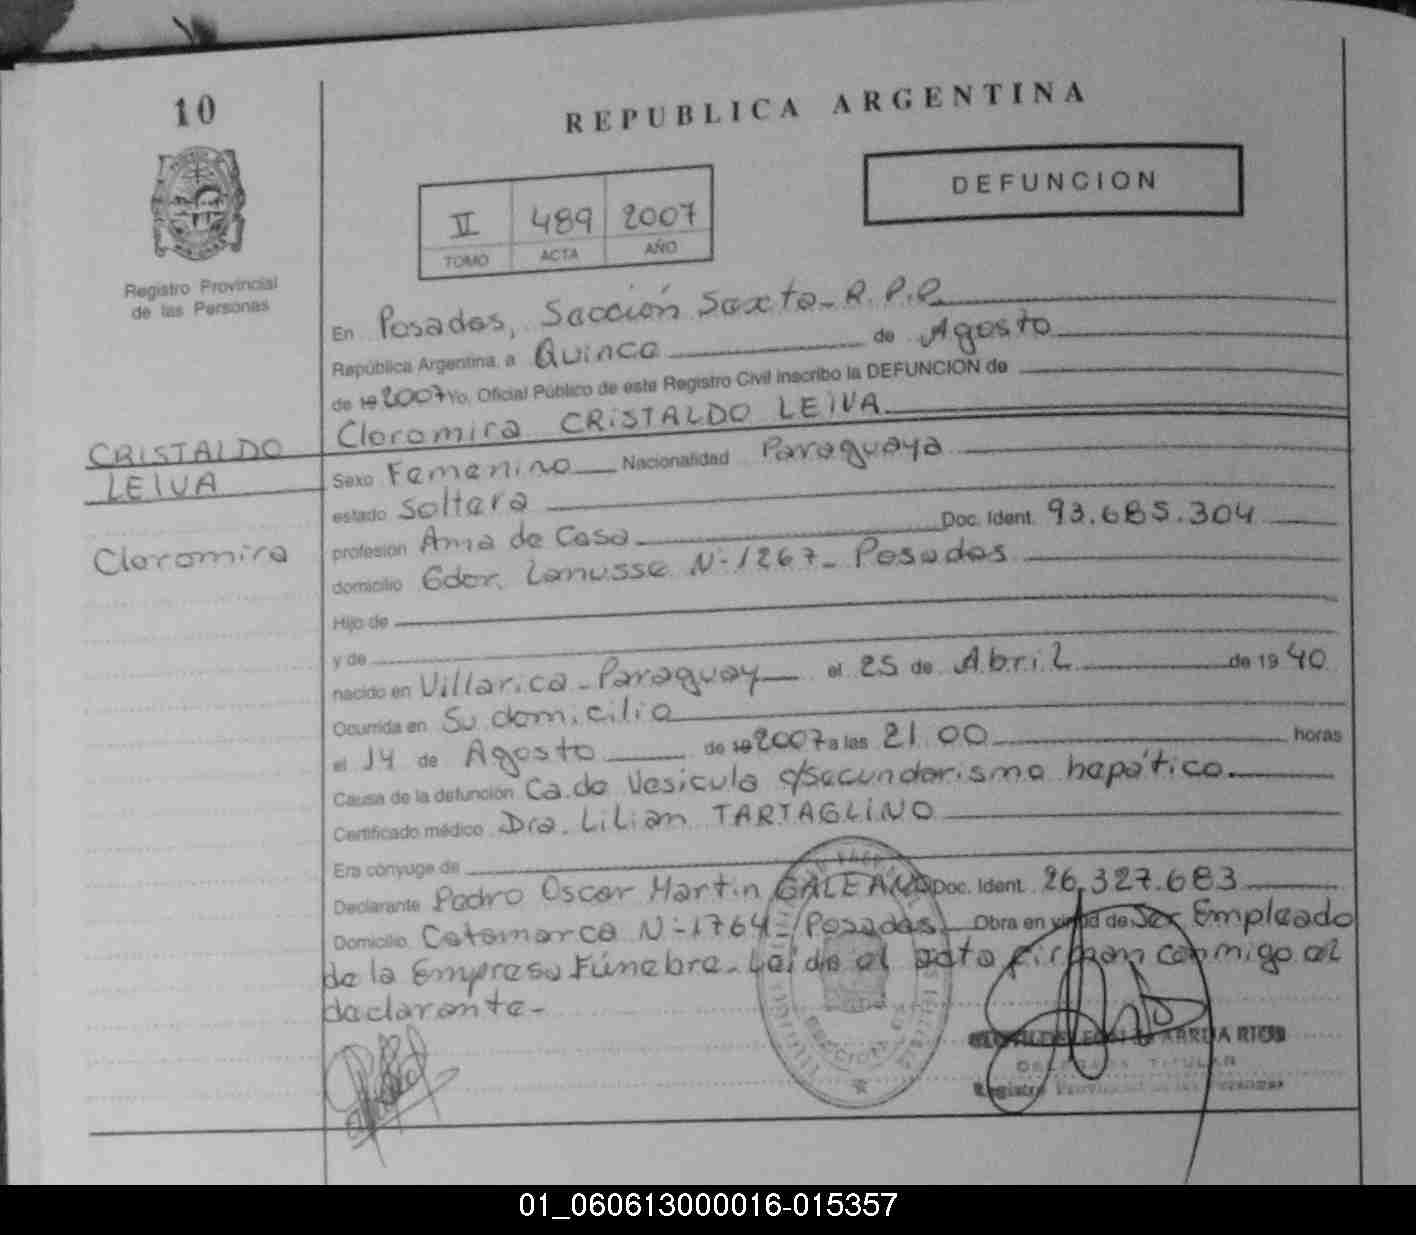 10
REPUBLICA ARGENTINA
DEFUNCION
II 489 2007
TOMO ACTA AÑO
Registro Provincial
de las Personas
En Posadas, Sección Sexta - R.P.P.
República Argentina, a Quince de Agosto
de 19 2007 Yo, Oficial Público de este Registro Civil inscribo la DEFUNCION de
Cloromira CRISTALDO LEIVA
CRISTALDO
LEIVA
Cloromira
Sexo Femenino Nacionalidad Paraguaya
estado Soltera
profesión Ama de Casa Doc. Ident. 93.685.304
domicilio Gdor. Lanusse N-1267- Posadas
Hijo de
y de
nacido en Villarica - Paraguay el 25 de Abril de 1940
Ocurrida en Su domicilio
el 14 de Agosto de 19 2007 a las 21.00 horas
Causa de la defunción Ca. de Vesicula c/secundarismo hepático.
Certificado médico Dra. Lilian TARTAGLINO
Era cónyuge de
Declarante Pedro Oscar Martin GALEANO Doc. Ident. 26.327.683
Domicilio Catamarca N-1764- Posadas Obra en virtud de Ser Empleado
de la Empresa Fúnebre. Leído el acta firman conmigo el
declarante-
ARRUA RIOS
TITULAR
Registro Provincial de las Personas
01_060613000016-015357